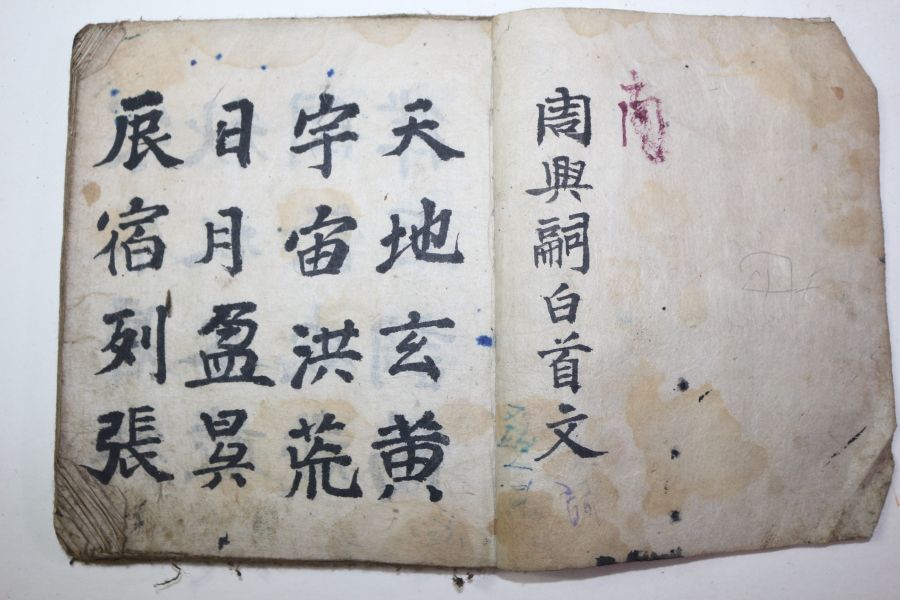 南
周興嗣白首文
天地玄黃
宇宙洪荒
日月盈昃
辰宿列張